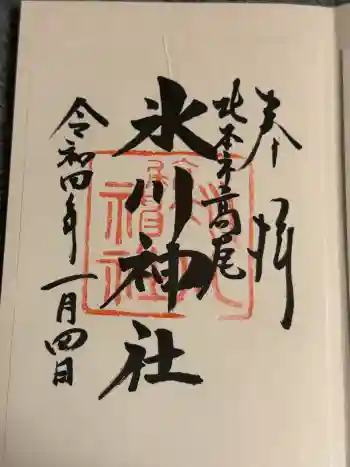 奉拝
北本市高尾
氷川神社
令和四年一月四日